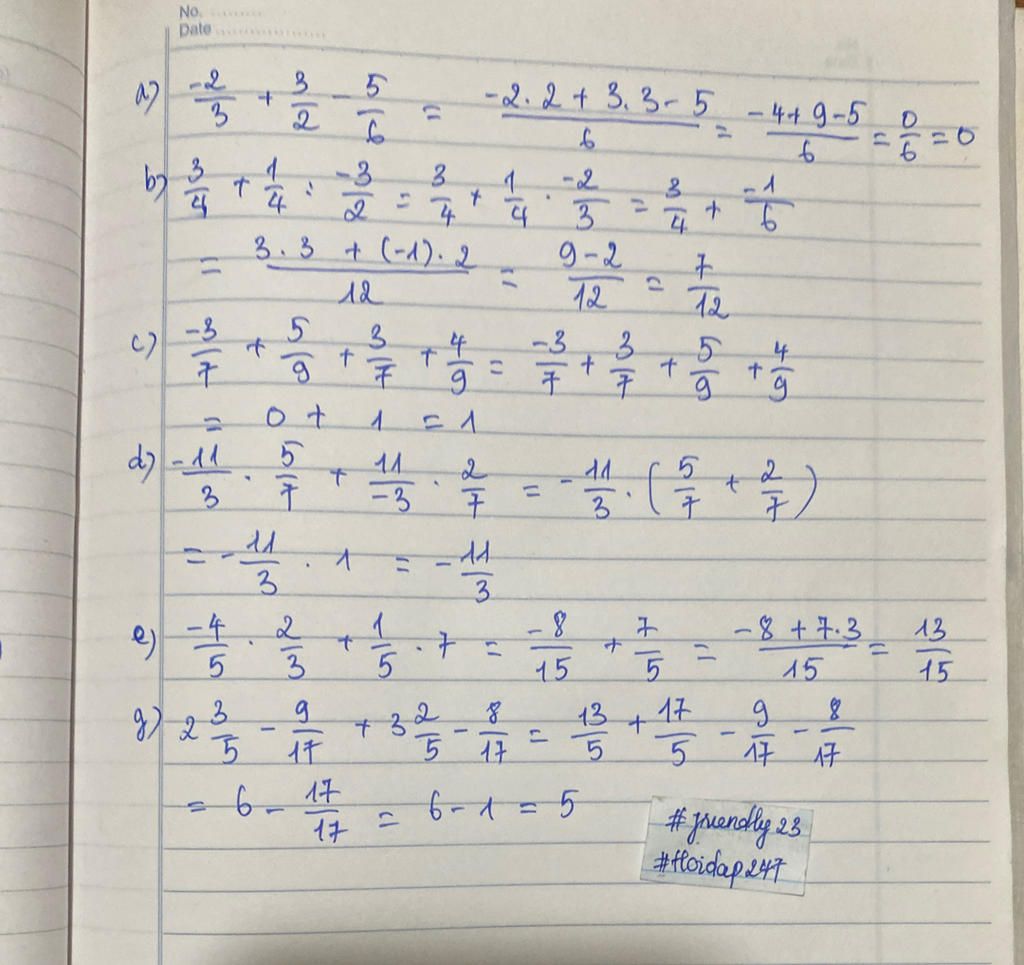 No. ..............
Date ....................
a) -2/3 + 3/2 - 5/6 = (-2.2 + 3.3 - 5)/6 = (-4+9-5)/6 = 0/6 = 0
b) 3/4 + 1/4 : -3/2 = 3/4 + 1/4 . -2/3 = 3/4 + -1/6
= (3.3 + (-1).2)/12 = (9-2)/12 = 7/12
c) -3/7 + 5/9 + 3/7 + 4/9 = -3/7 + 3/7 + 5/9 + 4/9
= 0 + 1 = 1
d) -11/3 . 5/7 + 11/-3 . 2/7 = -11/3 . (5/7 + 2/7)
= -11/3 . 1 = -11/3
e) -4/5 . 2/3 + 1/5 . 7 = -8/15 + 7/5 = (-8+7.3)/15 = 13/15
g) 2 3/5 - 9/17 + 3 2/5 - 8/17 = 13/5 + 17/5 - 9/17 - 8/17
= 6 - 17/17 = 6 - 1 = 5
#friendly23
#Hoidap247